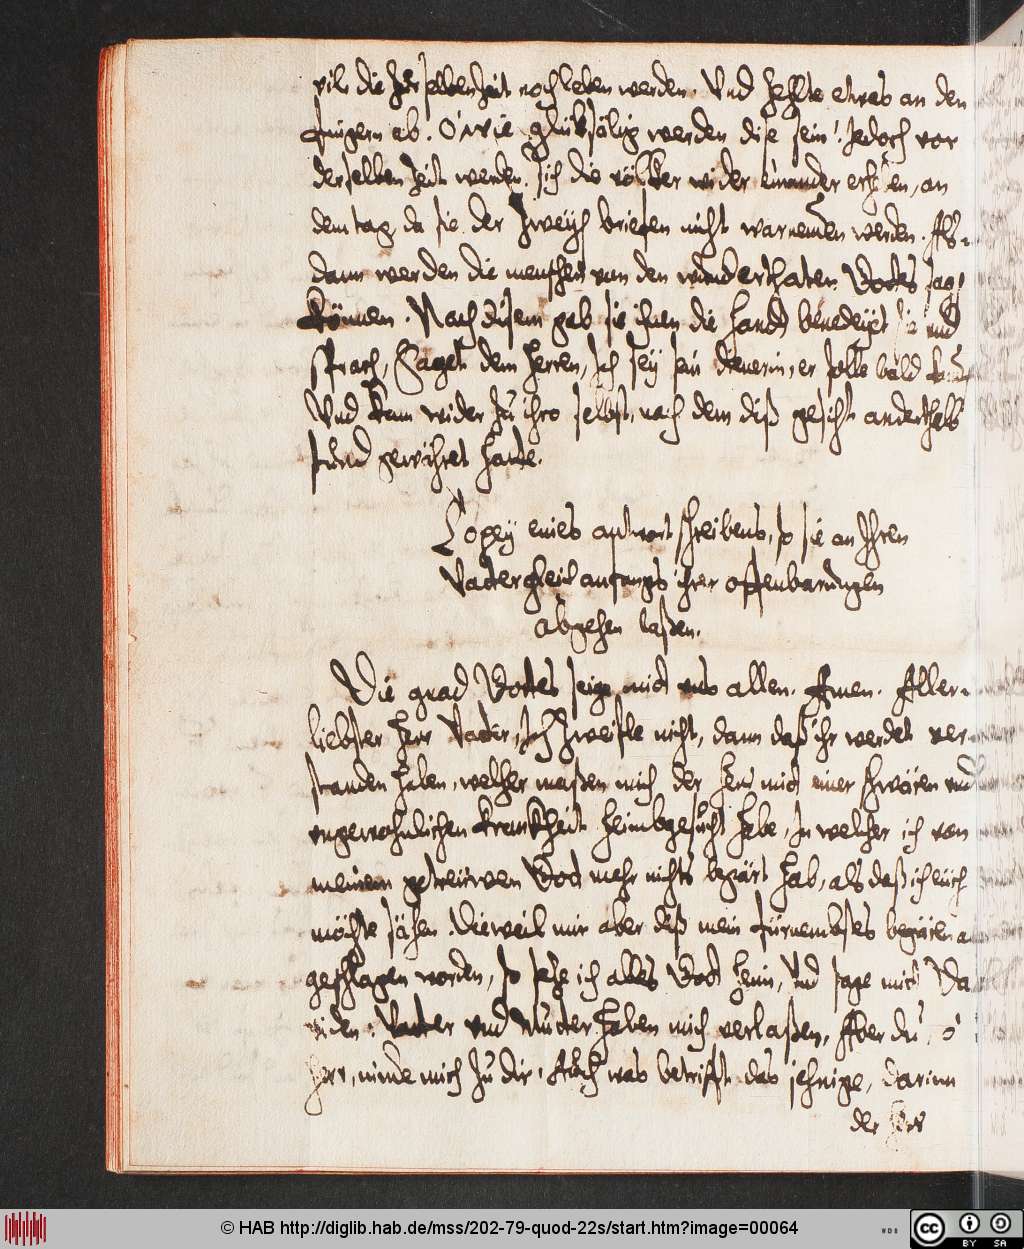 vil, die zur selben Zeit noch leben werden. Und zehlte etwas an den
fingern ab. O wie glüksälig werden dise sein! Jedoch vor
derselben Zeit werden sich die völker wider einander erheben, an
dem tag, da sie der Zweyen briefen nicht warnemen werden. Als-
dann werden die menschen von den wunderthaten Gottes sagen
können. Nach disem gab sie ihnen die hand, benedeyet sie und
sprach, Saget dem Herren, Ich sey sein dienerin, er solle bald
Und kam wider zu ihro selbst, nach dem diß gesicht anderthalb
stund gewähret hatte.
Copey eines antwort schreibens, so sie an Ihren
Vatter gleich anfangs ihrer offenbarungen
abgehen laßen.
Die gnad Gottes seige mit uns allen. Amen. Aller-
liebster Herr Vatter, Ich zweifle nicht, dann daß ihr werdet ver-
standen haben, welcher maßen mich der Herr mit einer schwären und
ungewohnlichen krankheit heimbgesucht habe, In welcher ich von
meinem getreüwen Gott mehr nichts begärt hab, als daß ich euch
möchte sähen. Dieweil mir aber diß mein fürnembstes begären a
geschlagen worden, so setze ich alles Gott heim, Und sage mit Da
viden: Vatter und Mutter haben mich verlaßen, Aber du, o
Herr, nimde mich zu dir. Auch was betrifft das jehnige, darinn
der Herr
© HAB http://diglib.hab.de/mss/202-79-quod-22s/start.htm?image=00064
WDB
cc BY SA